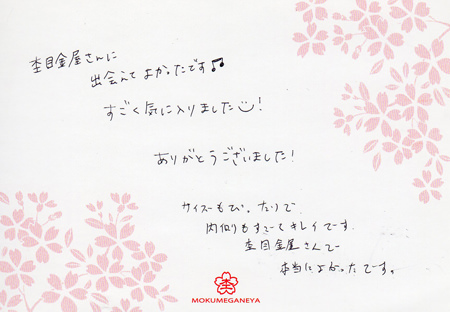 杢目金屋さんに
出会えてよかったです♫
すごく気に入りました!
ありがとうございました!
サイズもぴったりで
内側もすごくキレイです
杢目金屋さんで
本当によかったです。
MOKUMEGANEYA